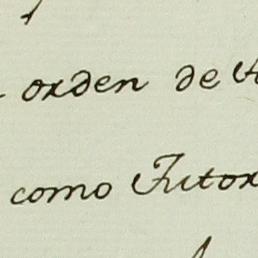 orden de
como Tutor